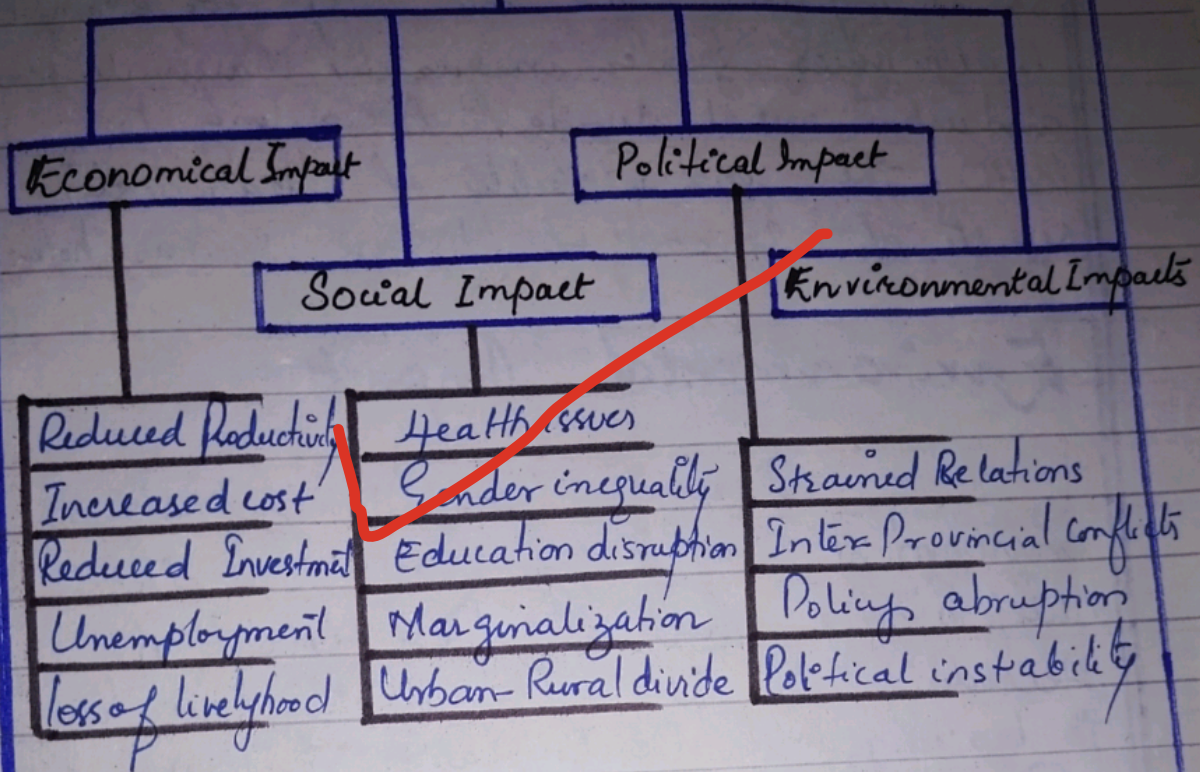 Economical Impact
Political Impact
Social Impact
Environmental Impacts
Reduced Productivity
Increased cost
Reduced Investmnt
Unemployment
loss of livelyhood
Health issues
Gender inequality
Education disruption
Marginalization
Urban-Rural divide
Strained Relations
Inter Provincial Conflicts
Policy abruption
Political instability